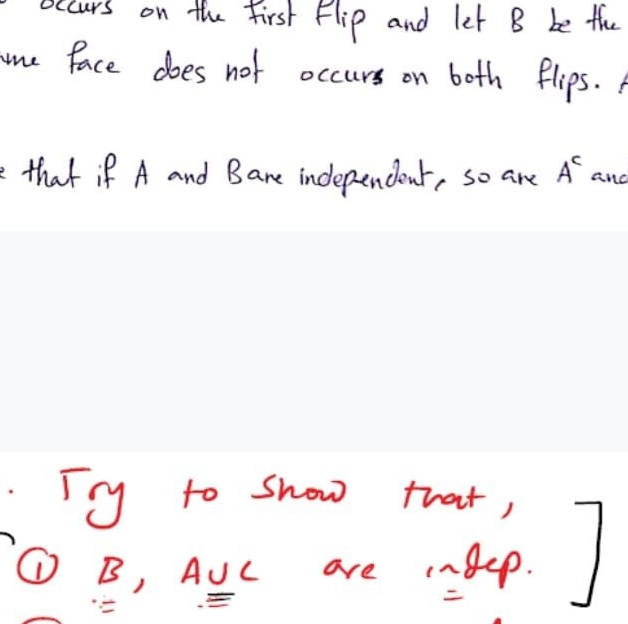 occurs on the first flip and let B be the
face does not occurs on both flips.
that if A and B are independent, so are Aᶜ and
. Try to show that,
① B, AUC are indep.